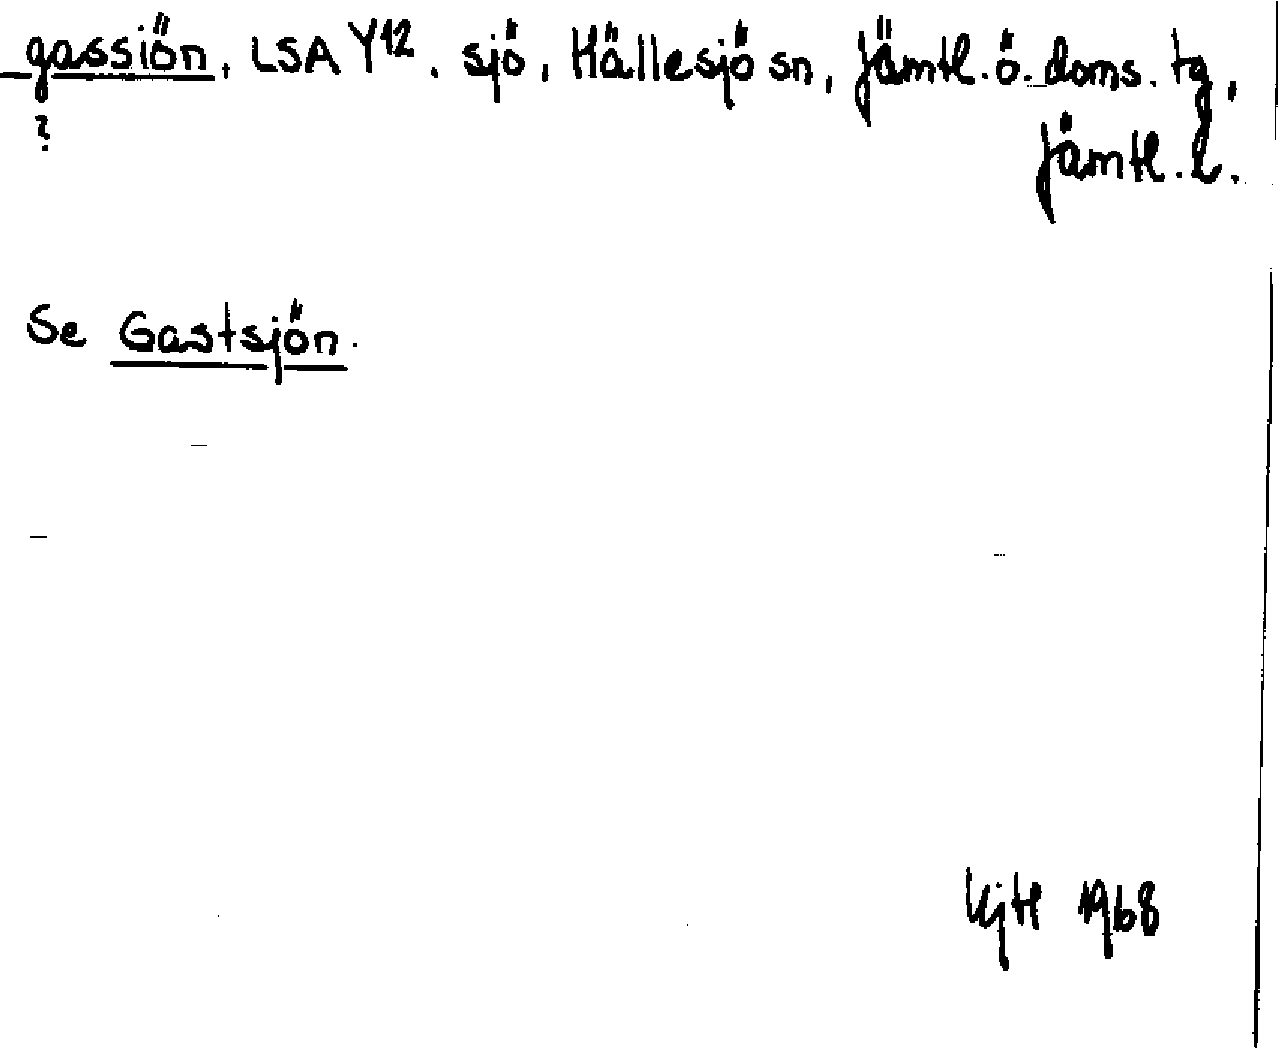 gassiön, LSA Y12. sjö, Hällesjö sn, Jämtl. ö. doms. tg,
?
Jämtl. l.
Se Gastsjön.
1968